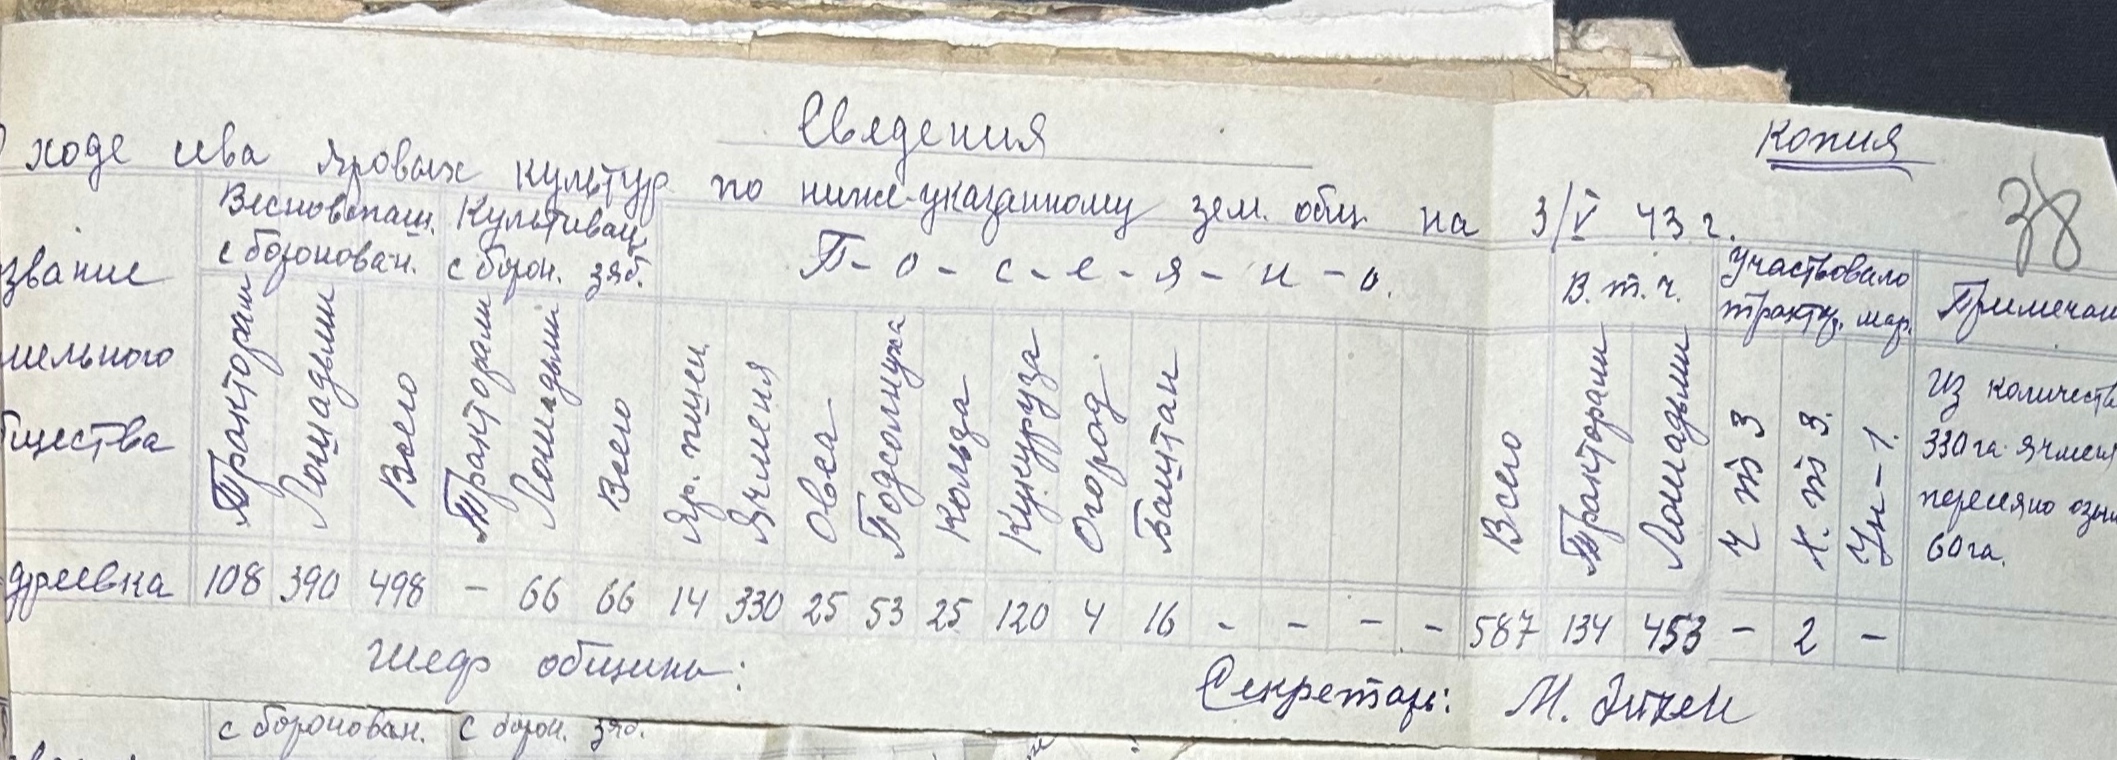 Сведения
Копия
38
ходе сева яровых культур по ниже-указанному зем. общ. на 3/V 43 г.
звание
мельного
бщества
Весновспаш.
с боронован.
Тракторами
Лошадьми
Всего
Культивац.
с борон. зяб.
Тракторами
Лошадьми
Всего
П - о - с - е - я - н - о.
Яр. пшен.
Ячменя
Овса
Подсолнуха
Кользы
Кукуруза
Огород
Баштан
Всего
В. т. ч.
Тракторами
Лошадьми
Участвовало
тракт. мар.
Ч Т З
Х. Т З.
Ун-1.
Примечан
Из количеств
330 га ячмен
пересяно озим
60 га.
дреевка 108 390 498 - 66 66 14 330 25 53 25 120 4 16 - - - - 587 134 453 - 2 -
Шеф общины:
Секретарь: М.
с боронован. с борон. зяб.